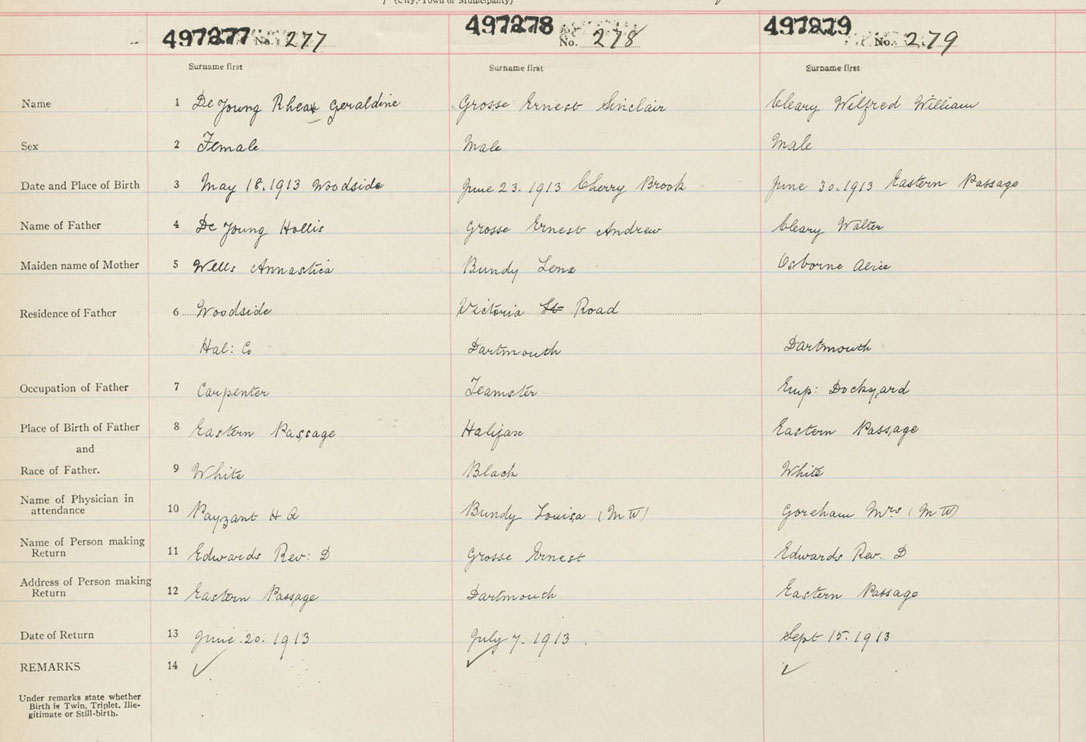 (City, Town or Municipality)
497277 No. 277 497278 No. 278 497279 No. 279
Surname first Surname first Surname first
Name 1 De Young Rhea Geraldine Grosse Ernest Sinclair Cleary Wilfred William
Sex 2 Female Male Male
Date and Place of Birth 3 May 18.1913 Woodside June 23.1913 Cherry Brook June 30.1913 Eastern Passage
Name of Father 4 De Young Hollis Grosse Ernest Andrew Cleary Walter
Maiden name of Mother 5 Wells Annastica Bundy Lena Osborne Alice
Residence of Father 6 Woodside Victoria St Road
Hal: Co Dartmouth Dartmouth
Occupation of Father 7 Carpenter Teamster Emp: Dockyard
Place of Birth of Father 8 Eastern Passage Halifax Eastern Passage
and
Race of Father. 9 White Black White
Name of Physician in
attendance 10 Payzant H A Bundy Louisa (M W) Goreham Mrs (M W)
Name of Person making
Return 11 Edwards Rev: D Grosse Ernest Edwards Rev. D
Address of Person making
Return 12 Eastern Passage Dartmouth Eastern Passage
Date of Return 13 June.20.1913 July 7.1913. Sept 15.1913
REMARKS 14 ✓ ✓ ✓
Under remarks state whether
Birth is Twin, Triplet, Ille-
gitimate or Still-birth.